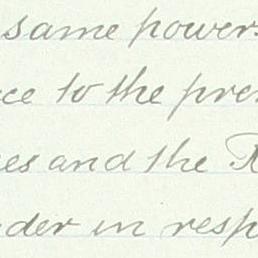 same powers
ce to the pre
es and the R
der in resp